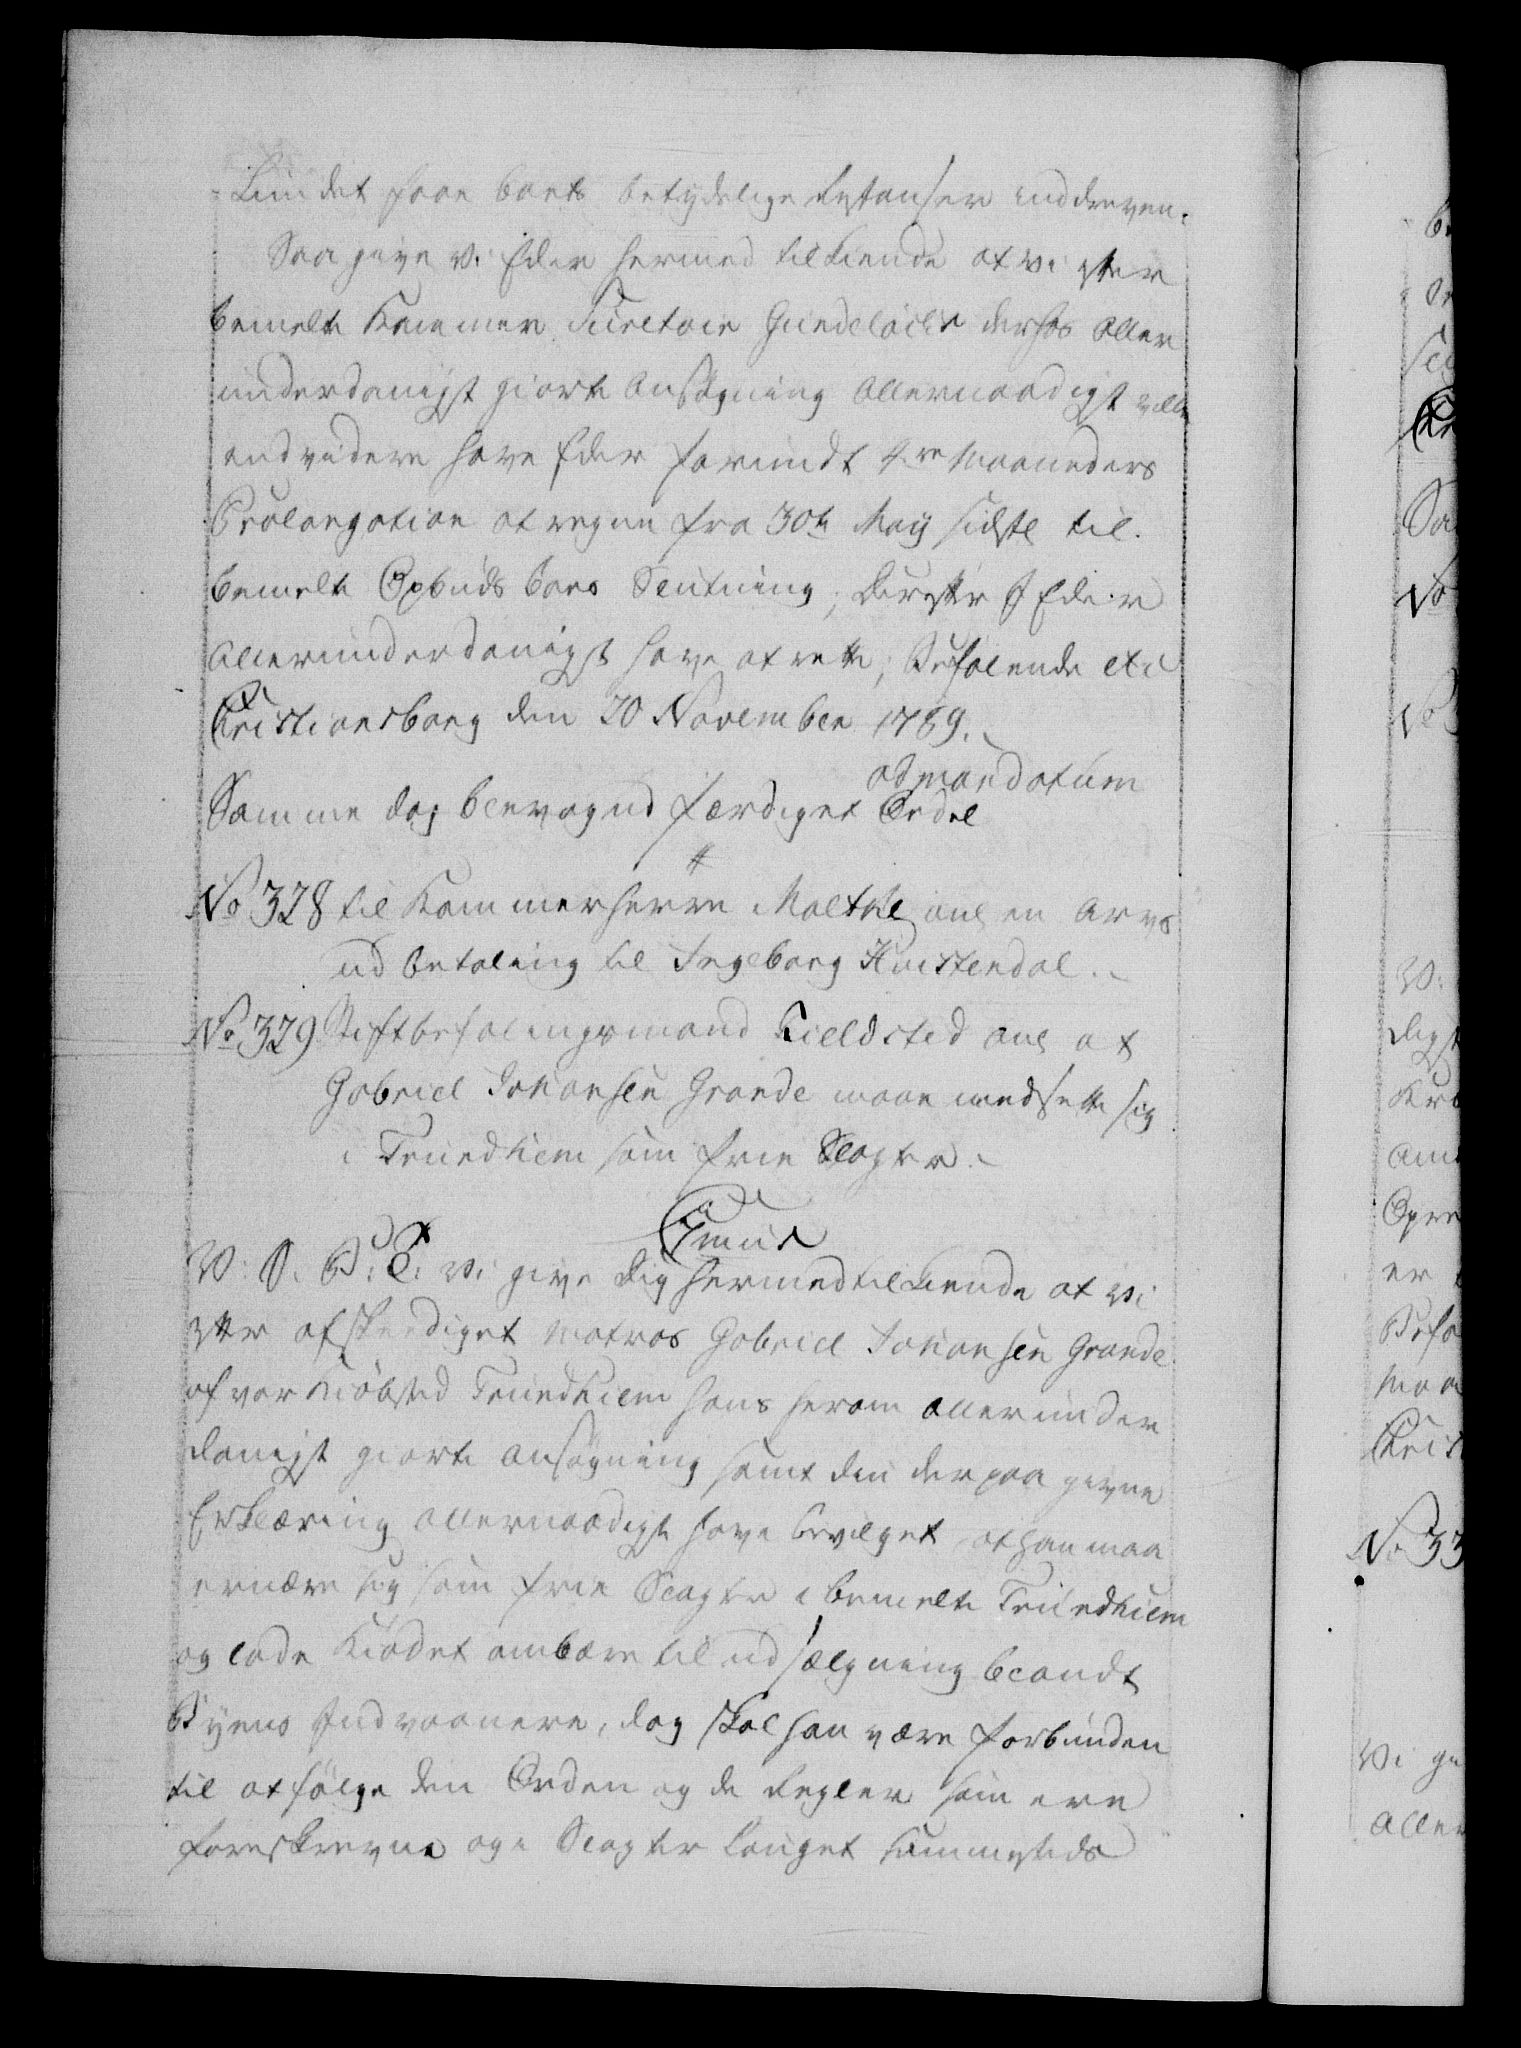 Kundet faae boets betydelige Restanser inddreven.
Saa give Vi Eder hermed tilkiende at Vi efter
bemelte Kammer Secretair Gundelachs derhos Aller
underdanigst giorte Ansøgning Allernaadigst ville
endvidere have Eder forundt 4re Maaneders
Prolongation at regne fra 30te Maij sidste til
bemelte Opbuds boes Slutning, Derefter I Eder
Allerunderdanigst have at rette; Befalende etc
Christiansborg den 20 November 1789.
ad mandatum
Samme dag blev og udfærdiget Ordre
No 328 til Kammerherre Moltke anl en Arvs
udbetaling til Ingeborg Huistendal.
No 329 Stiftbefalingsmand Fieldsted anl at
Gabriel Johansen Grande maae nedsette sig
i Trundhiem som frie Slagter.
C 7mus
Vi give Dig hermed tilkiende at Vi
efter afskediget Matros Gabriel Johansen Grande
af vor Kiøbsted Trundhiem hans herom allerunder
danigst giorte Ansøgning samt den derpaa givne
Erklæring allernaadigst have bevilget, at han maa
ernære sig som frie Slagter i bemelte Trundhiem
og lade Kiødet ombære til udsælgning blandt
Byens Indvaanere, dog skal han være forbunden
til at følge den Orden og de Regler som ere
foreskrevne og i Slagter Lauget sammesteds